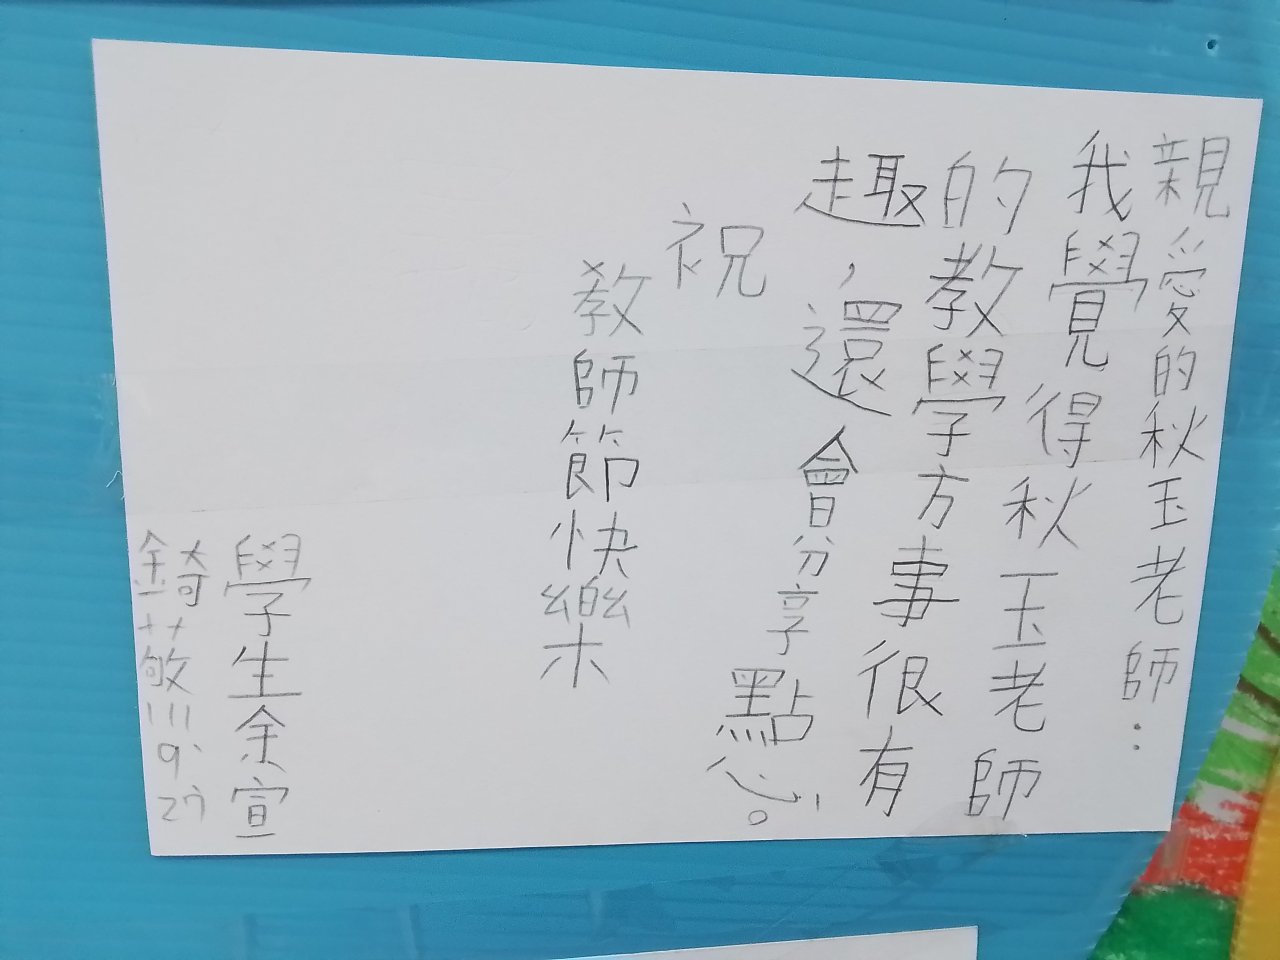 親愛的秋玉老師：
我覺得秋玉老師
的教學方事很有
趣，還會分享點心。
祝
教師節快樂
學生余宣
錡敬111.9.27